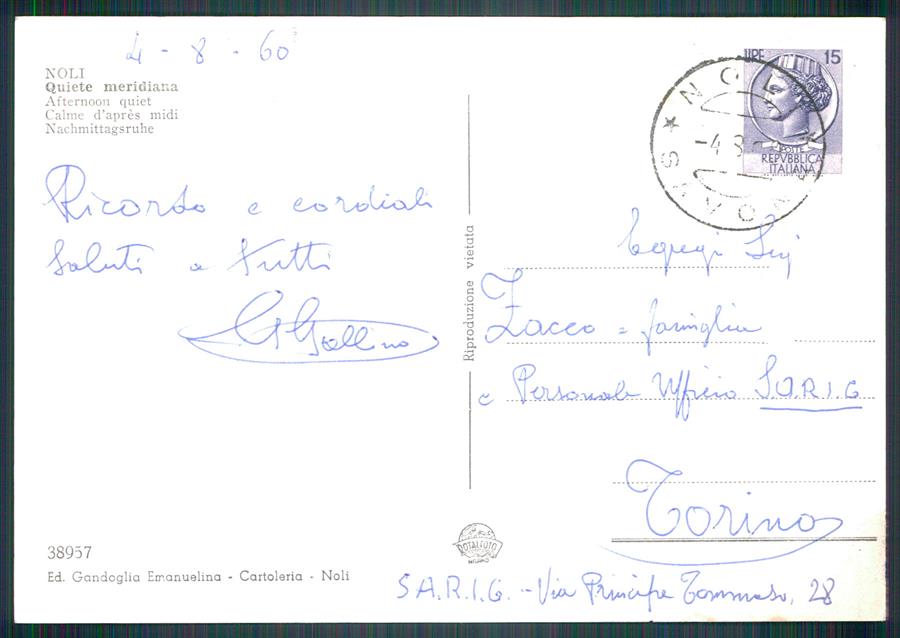 4 - 8 - 60
NOLI
Quiete meridiana
Afternoon quiet
Calme d'après midi
Nachmittagsruhe
Ricordo e cordiali
Saluti a tutti
Gallino
38957
Ed. Gandoglia Emanuelina - Cartoleria - Noli
Riproduzione vietata
TOTALFOTO
MILANO
LIRE 15
POSTE
REPVBBLICA
ITALIANA
NOLI
-4.8
SAVONA
Egregi Sig
Zacco e famiglia
e Personale Ufficio S.A.R.I.G
Torino
S.A.R.I.G. - Via Principe Tommaso, 28